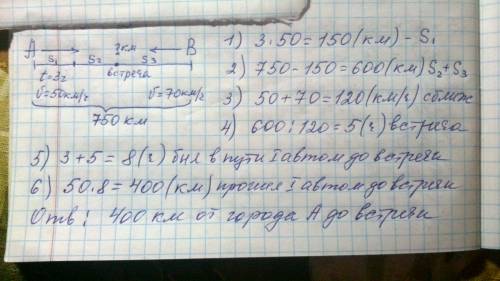 A ? км B
S₁ S₂ S₃
t=3ч встреча
V=50км/ч V=70км/ч
750 км
1) 3·50=150(км)-S₁
2) 750-150=600(км)S₂+S₃
3) 50+70=120(км/ч) сближ
4) 600:120=5(ч) встреча
5) 3+5=8(ч) был в пути I автом до встречи
6) 50·8=400(км) прошел I автом до встречи
Отв: 400 км от города А до встречи